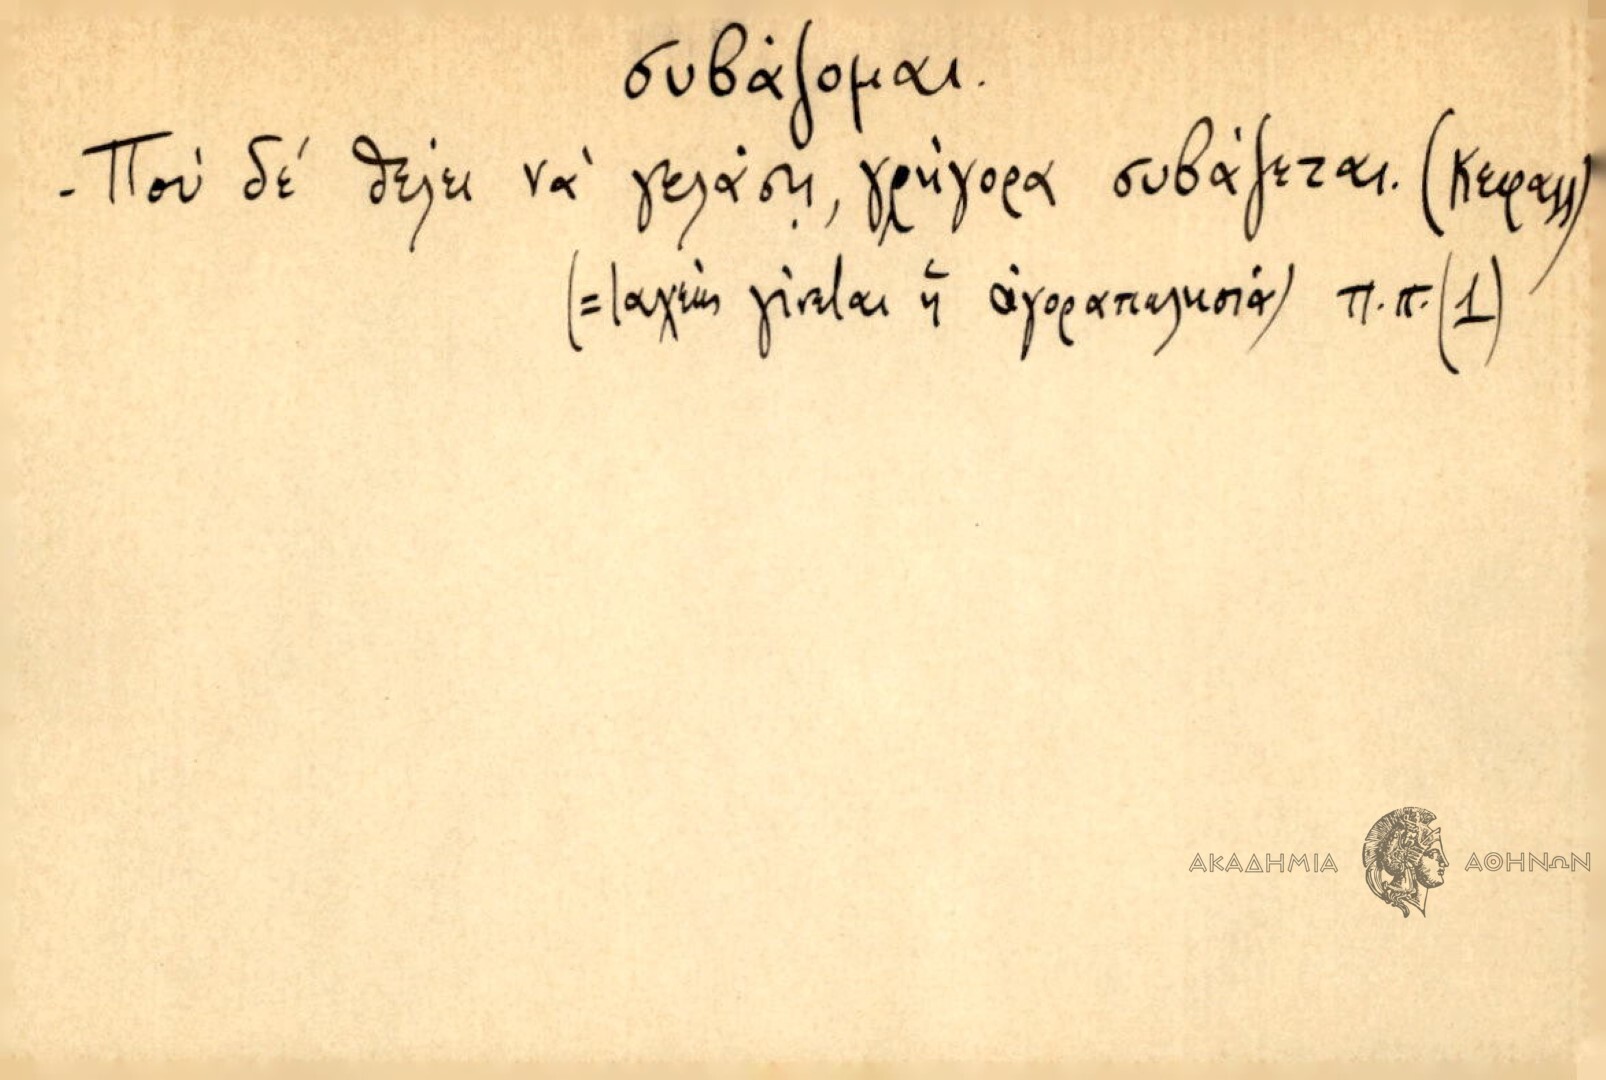 συβάζομαι.
- Πού δέ θέλει νά γελάση, γρήγορα συβάζεται. (Κεφαλλ)
(= ταχέως γίνεται ἡ ἀγοραπωλησία) π.π. (1)
ΑΚΑΔΗΜΙΑ ΑΘΗΝΩΝ